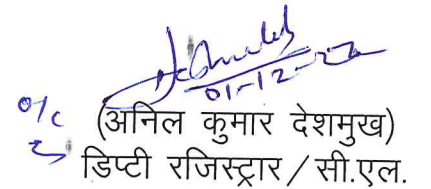 01-12-22
o/c
(अनिल कुमार देशमुख)
डिप्टी रजिस्ट्रार / सी.एल.